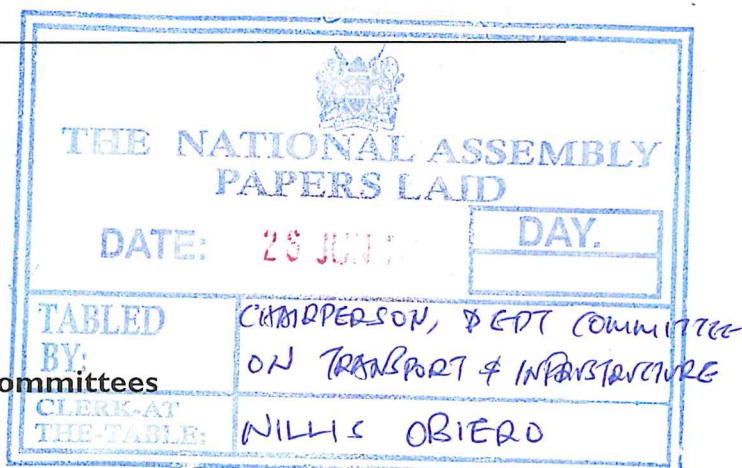 THE NATIONAL ASSEMBLY
PAPERS LAID
DATE:
DAY.
TABLED
BY:
CHAIRPERSON, DEPT COMMITTEE
ON TRANSPORT & INFRASTRUCTURE
ommittees
CLERK-AT
THE-TABLE:
WILLIS OBIERO